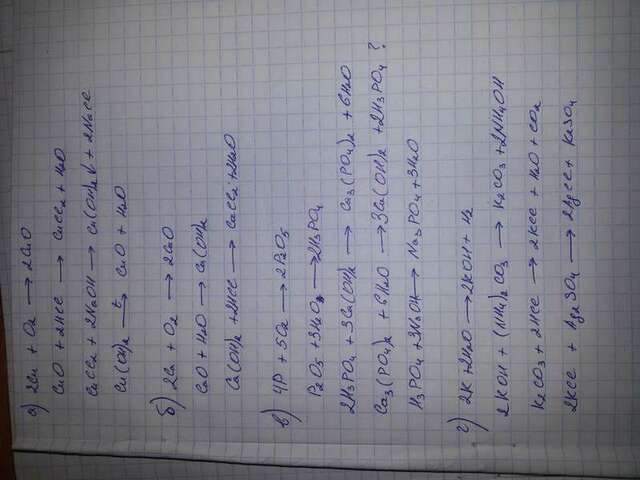 а) 2Cu + O₂ → 2CuO
CuO + 2HCl → CuCl₂ + H₂O
CuCl₂ + 2NaOH → Cu(OH)₂↓ + 2NaCl
Cu(OH)₂ –t→ CuO + H₂O
б) 2Ca + O₂ → 2CaO
CaO + H₂O → Ca(OH)₂
Ca(OH)₂ + 2HCl → CaCl₂ + 2H₂O
в) 4P + 5O₂ → 2P₂O₅
P₂O₅ + 3H₂O → 2H₃PO₄
2H₃PO₄ + 3Ca(OH)₂ → Ca₃(PO₄)₂ + 6H₂O
Ca₃(PO₄)₂ + 6H₂O → 3Ca(OH)₂ + 2H₃PO₄ ?
H₃PO₄ + 3NaOH → Na₃PO₄ + 3H₂O
г) 2K + 2H₂O → 2KOH + H₂
2KOH + (NH₄)₂CO₃ → K₂CO₃ + 2NH₄OH
K₂CO₃ + 2HCl → 2KCl + H₂O + CO₂
2KCl + Ag₂SO₄ → 2AgCl + K₂SO₄